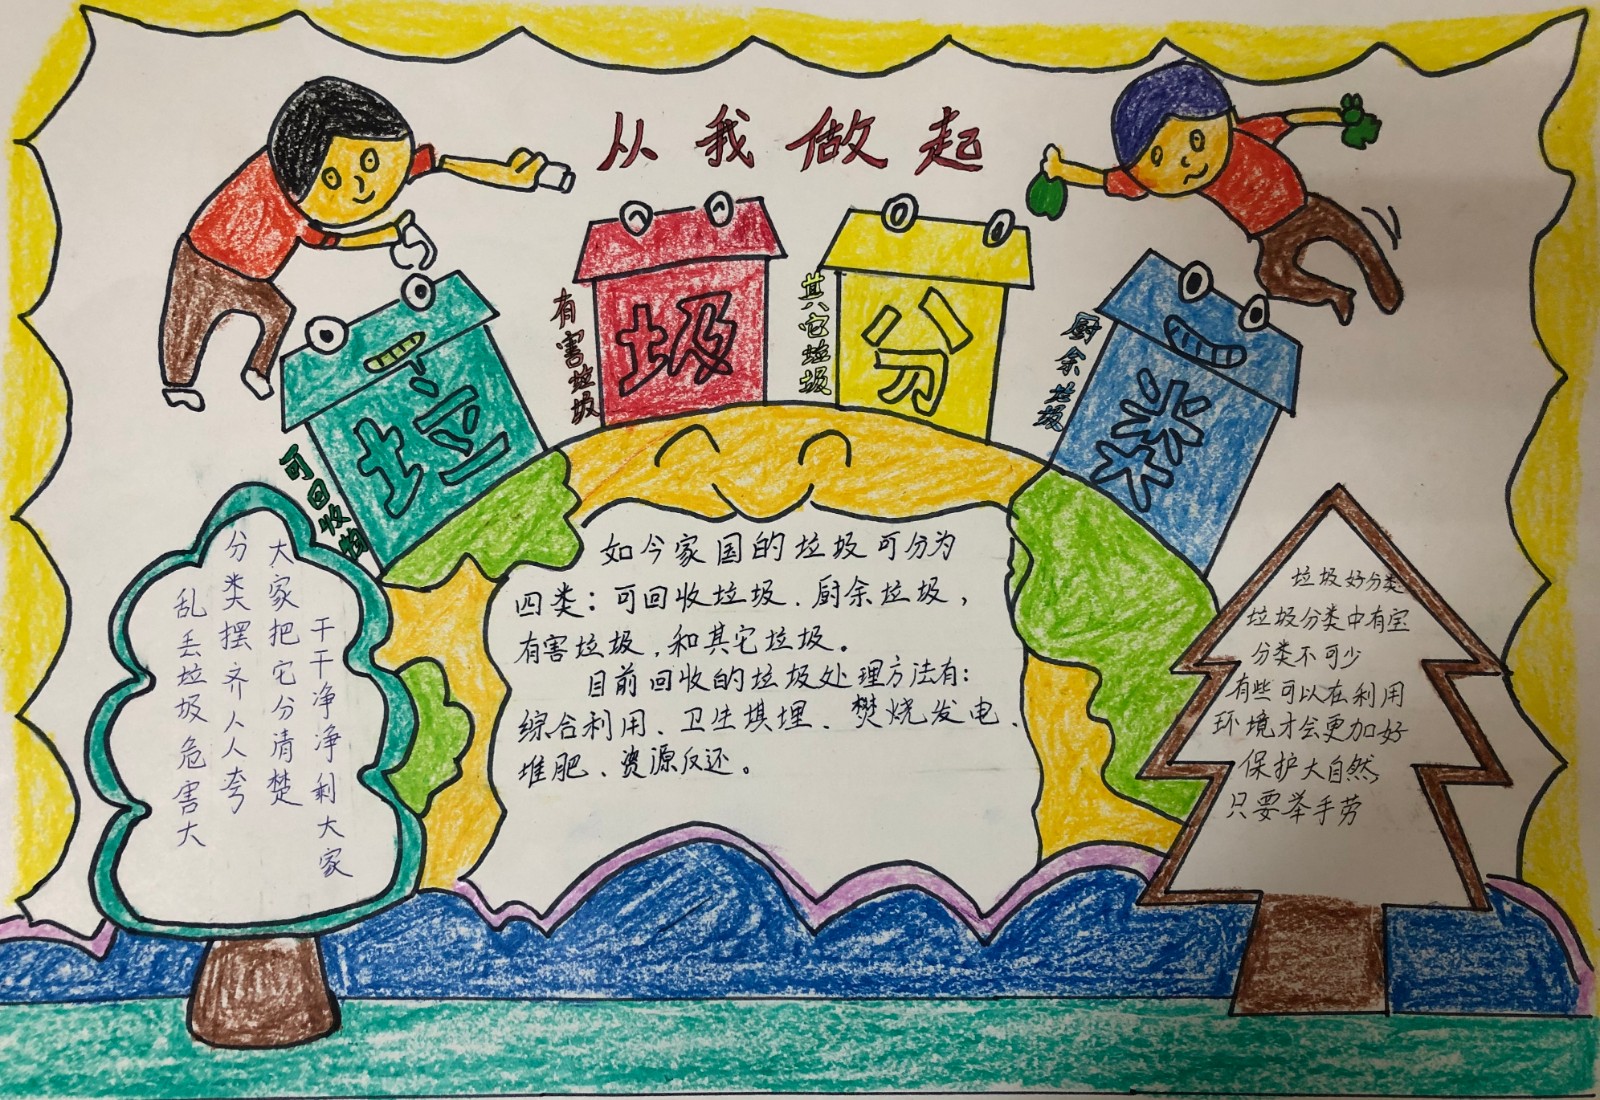 从我做起
垃
圾
分
类
可回收物
有害垃圾
其它垃圾
厨余垃圾
干干净净剩大家
大家把它分清楚
分类摆齐人人夸
乱丢垃圾危害大
如今家国的垃圾可分为
四类：可回收垃圾、厨余垃圾，
有害垃圾，和其它垃圾。
目前回收的垃圾处理方法有：
综合利用、卫生填埋、焚烧发电、
堆肥、资源反还。
垃圾好分类
垃圾分类中有宝
分类不可少
有些可以在利用
环境才会更加好
保护大自然
只要举手劳